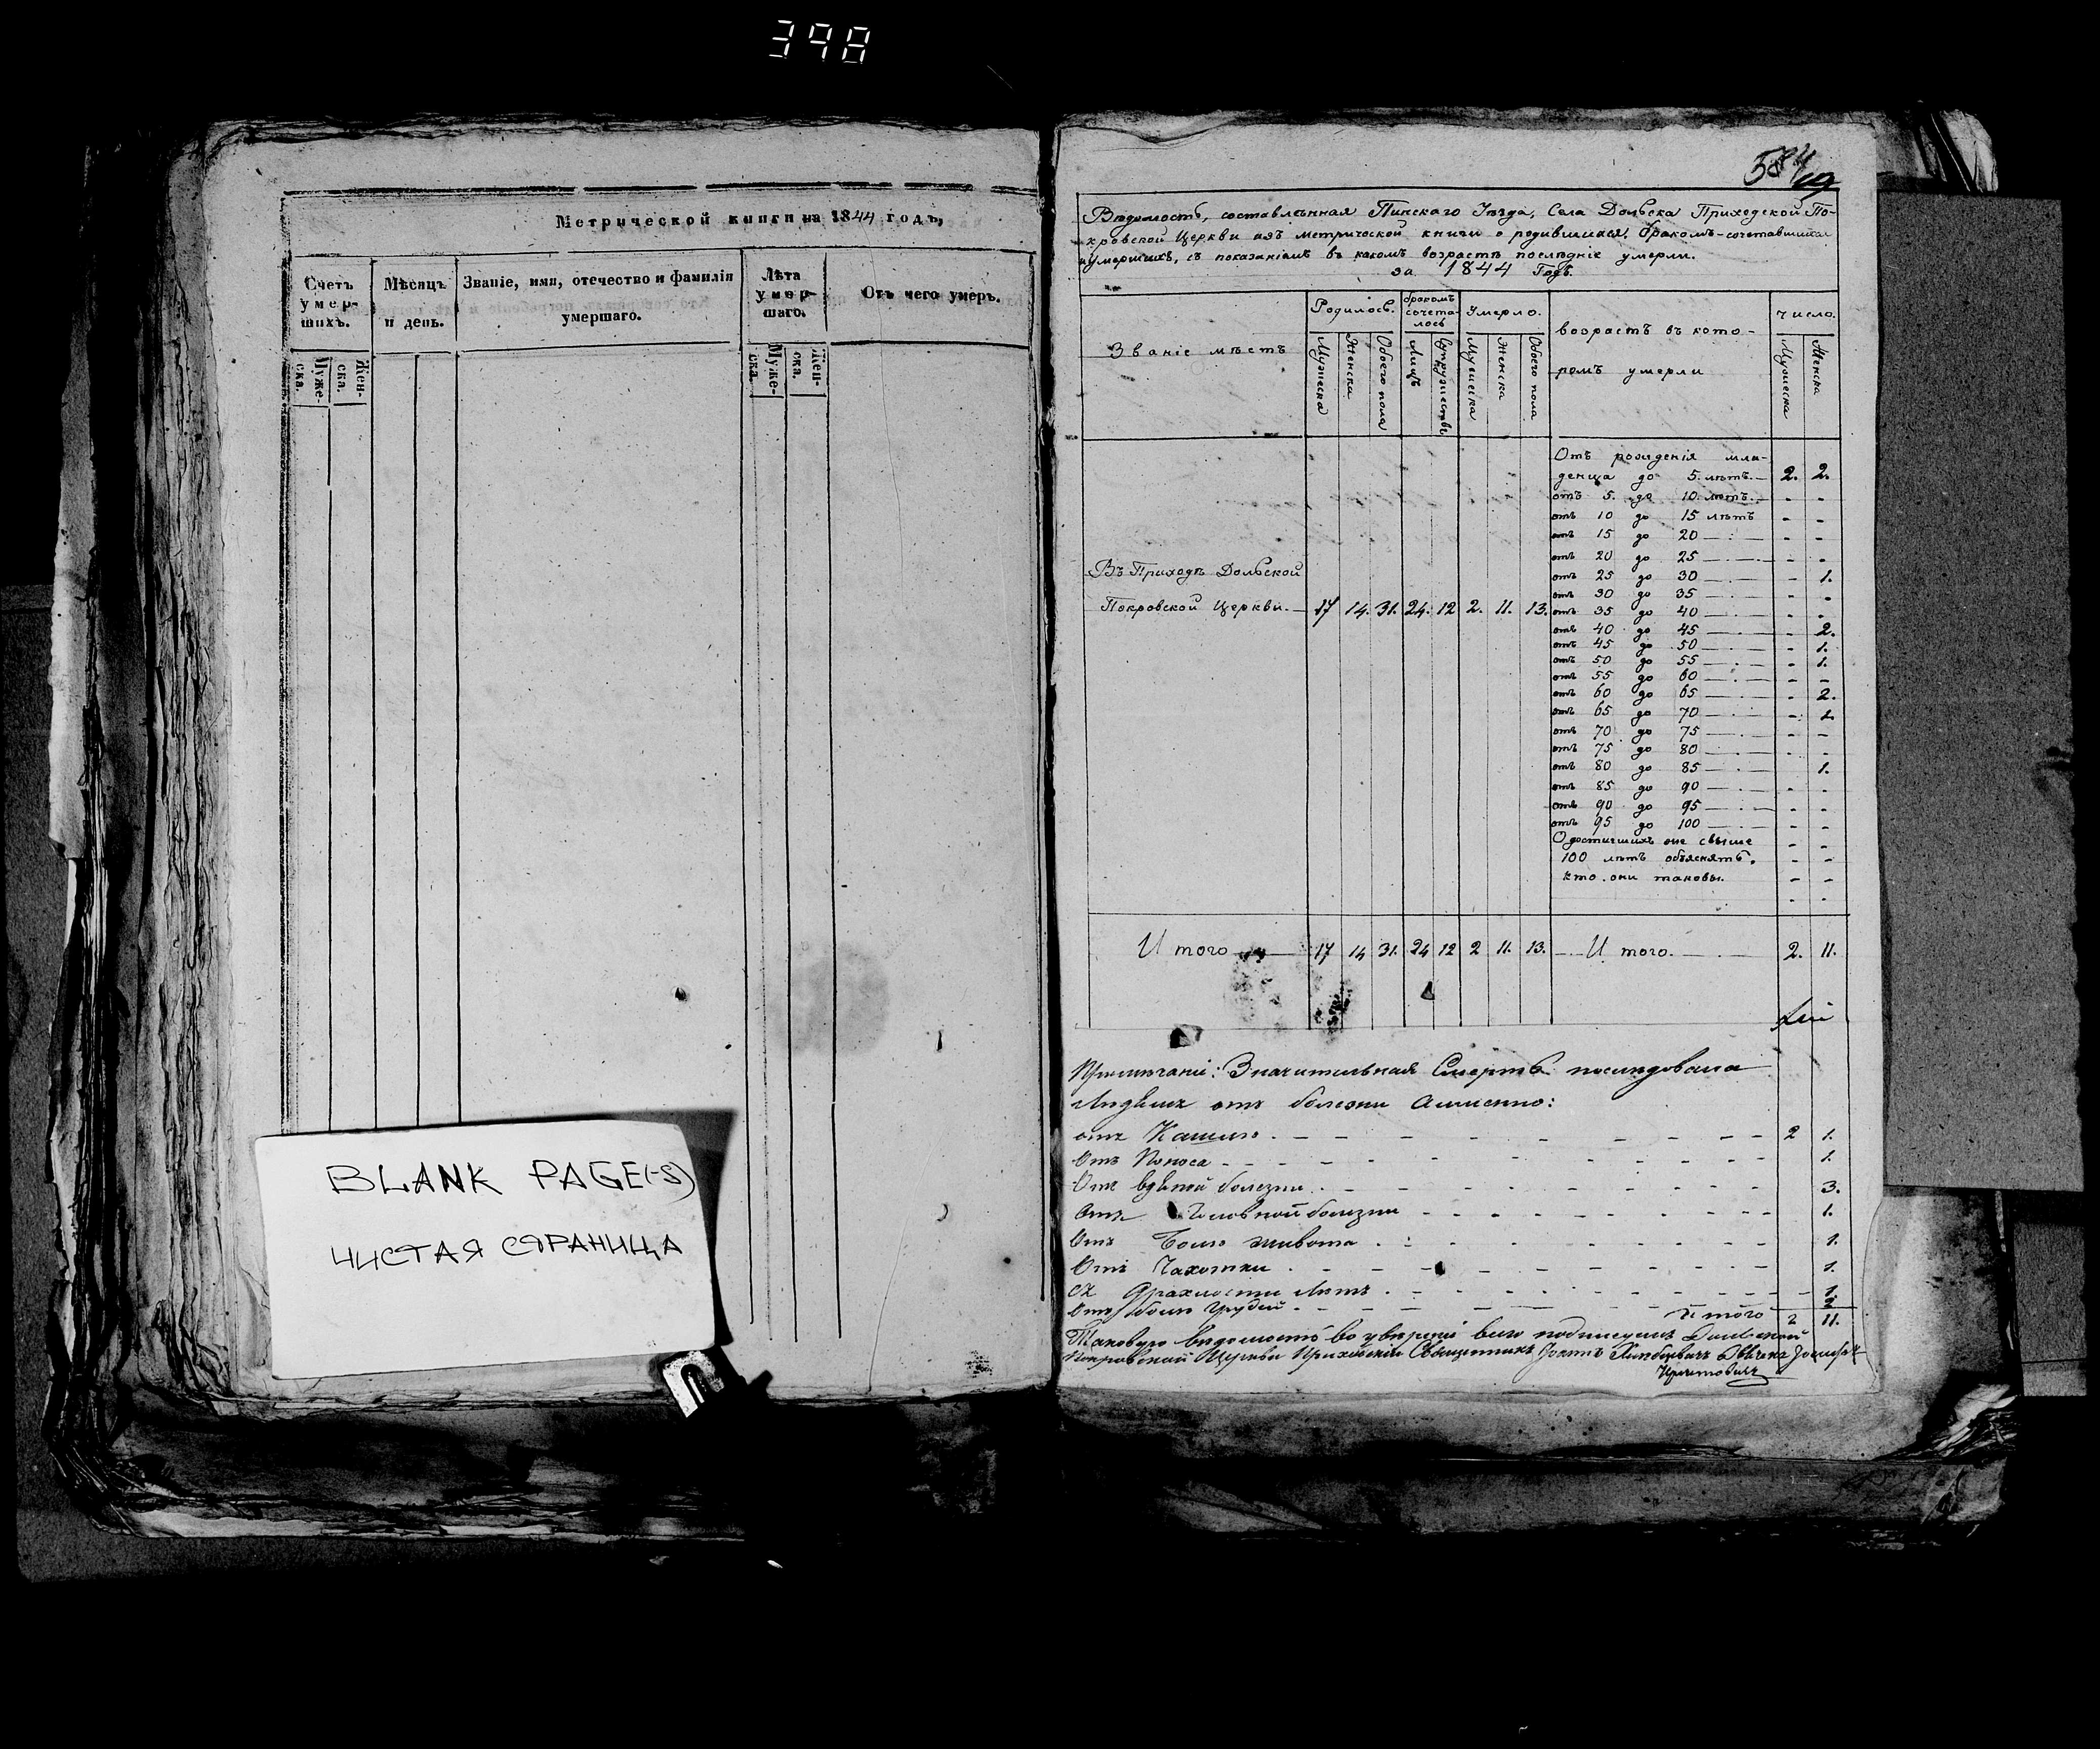 398
Метрической книги на 1844 годъ,
Счетъ умер-шихъ.
Мѣсяцъ и день.
Званіе, имя, отечество и фамилія умершаго.
Лѣта умер-шаго.
Отъ чего умеръ.
Муже-ска.
Жен-ска.
Муже-ска.
Жен-ска.
BLANK PAGE(-S)
ЧИСТАЯ СТРАНИЦА
584
Вѣдомость, составлѣнная Пинскаго Уѣзда, Села Дольска Приходской По-
кровской Церкви изъ метрической книги о родившихся, бракомъ-сочетавшихся
и умершихъ, съ показаніемъ въ какомъ возрастѣ послѣдніе умерли.
за 1844 Годъ.
Званіе мѣстъ
Родилось.
бракомъ сочета-лось
Умерло.
возрастъ въ кото-
ромъ умерли
Число.
Мужеска
Женска
Обоего пола
Лицъ
Супружествъ
Мужеска
Женска
Обоего пола
Мужеска
Женска
Отъ рожденія мла-
денца до 5. лѣтъ.— 2. 2.
отъ 5. до 10. лѣтъ. - -
отъ 10 до 15 лѣтъ - -
отъ 15 до 20 — - -
отъ 20 до 25 — - -
отъ 25 до 30 — - 1.
отъ 30 до 35 — - -
Въ Приходѣ Дольской
Покровской Церкви.— 17 14. 31. 24. 12 2. 11. 13.
отъ 35 до 40 — - -
отъ 40 до 45 — - 2.
отъ 45 до 50 — - 1.
отъ 50 до 55 — - 1.
отъ 55 до 60 — - -
отъ 60 до 65 — - 2.
отъ 65 до 70 — - 1.
отъ 70 до 75 — - -
отъ 75 до 80 — - -
отъ 80 до 85 — - 1.
отъ 85 до 90 — - -
отъ 90 до 95 — - -
отъ 95 до 100 — - -
О достигшихъ же свыше - -
100 лѣтъ объяснять, - -
кто они таковы. - -
Итого 17 14 31. 24 12 2 11. 13. Итого. 2. 11.
Примѣчаніе: Значительная Смерть последовала
Людямъ отъ болезни Аименно:
отъ Кашлю 2 1.
Отъ Поноса 1.
Отъ болезни 3.
Отъ Головной болезни 1.
Отъ Болю живота 1.
Отъ Чахотки 1.
съ Драхлости Лѣтъ 1.
Отъ болю Грудей 2
Итого 2 11.
Таковую вѣдомость во увѣреніе Дольской
Покровской Церкви Приходскій Священникъ